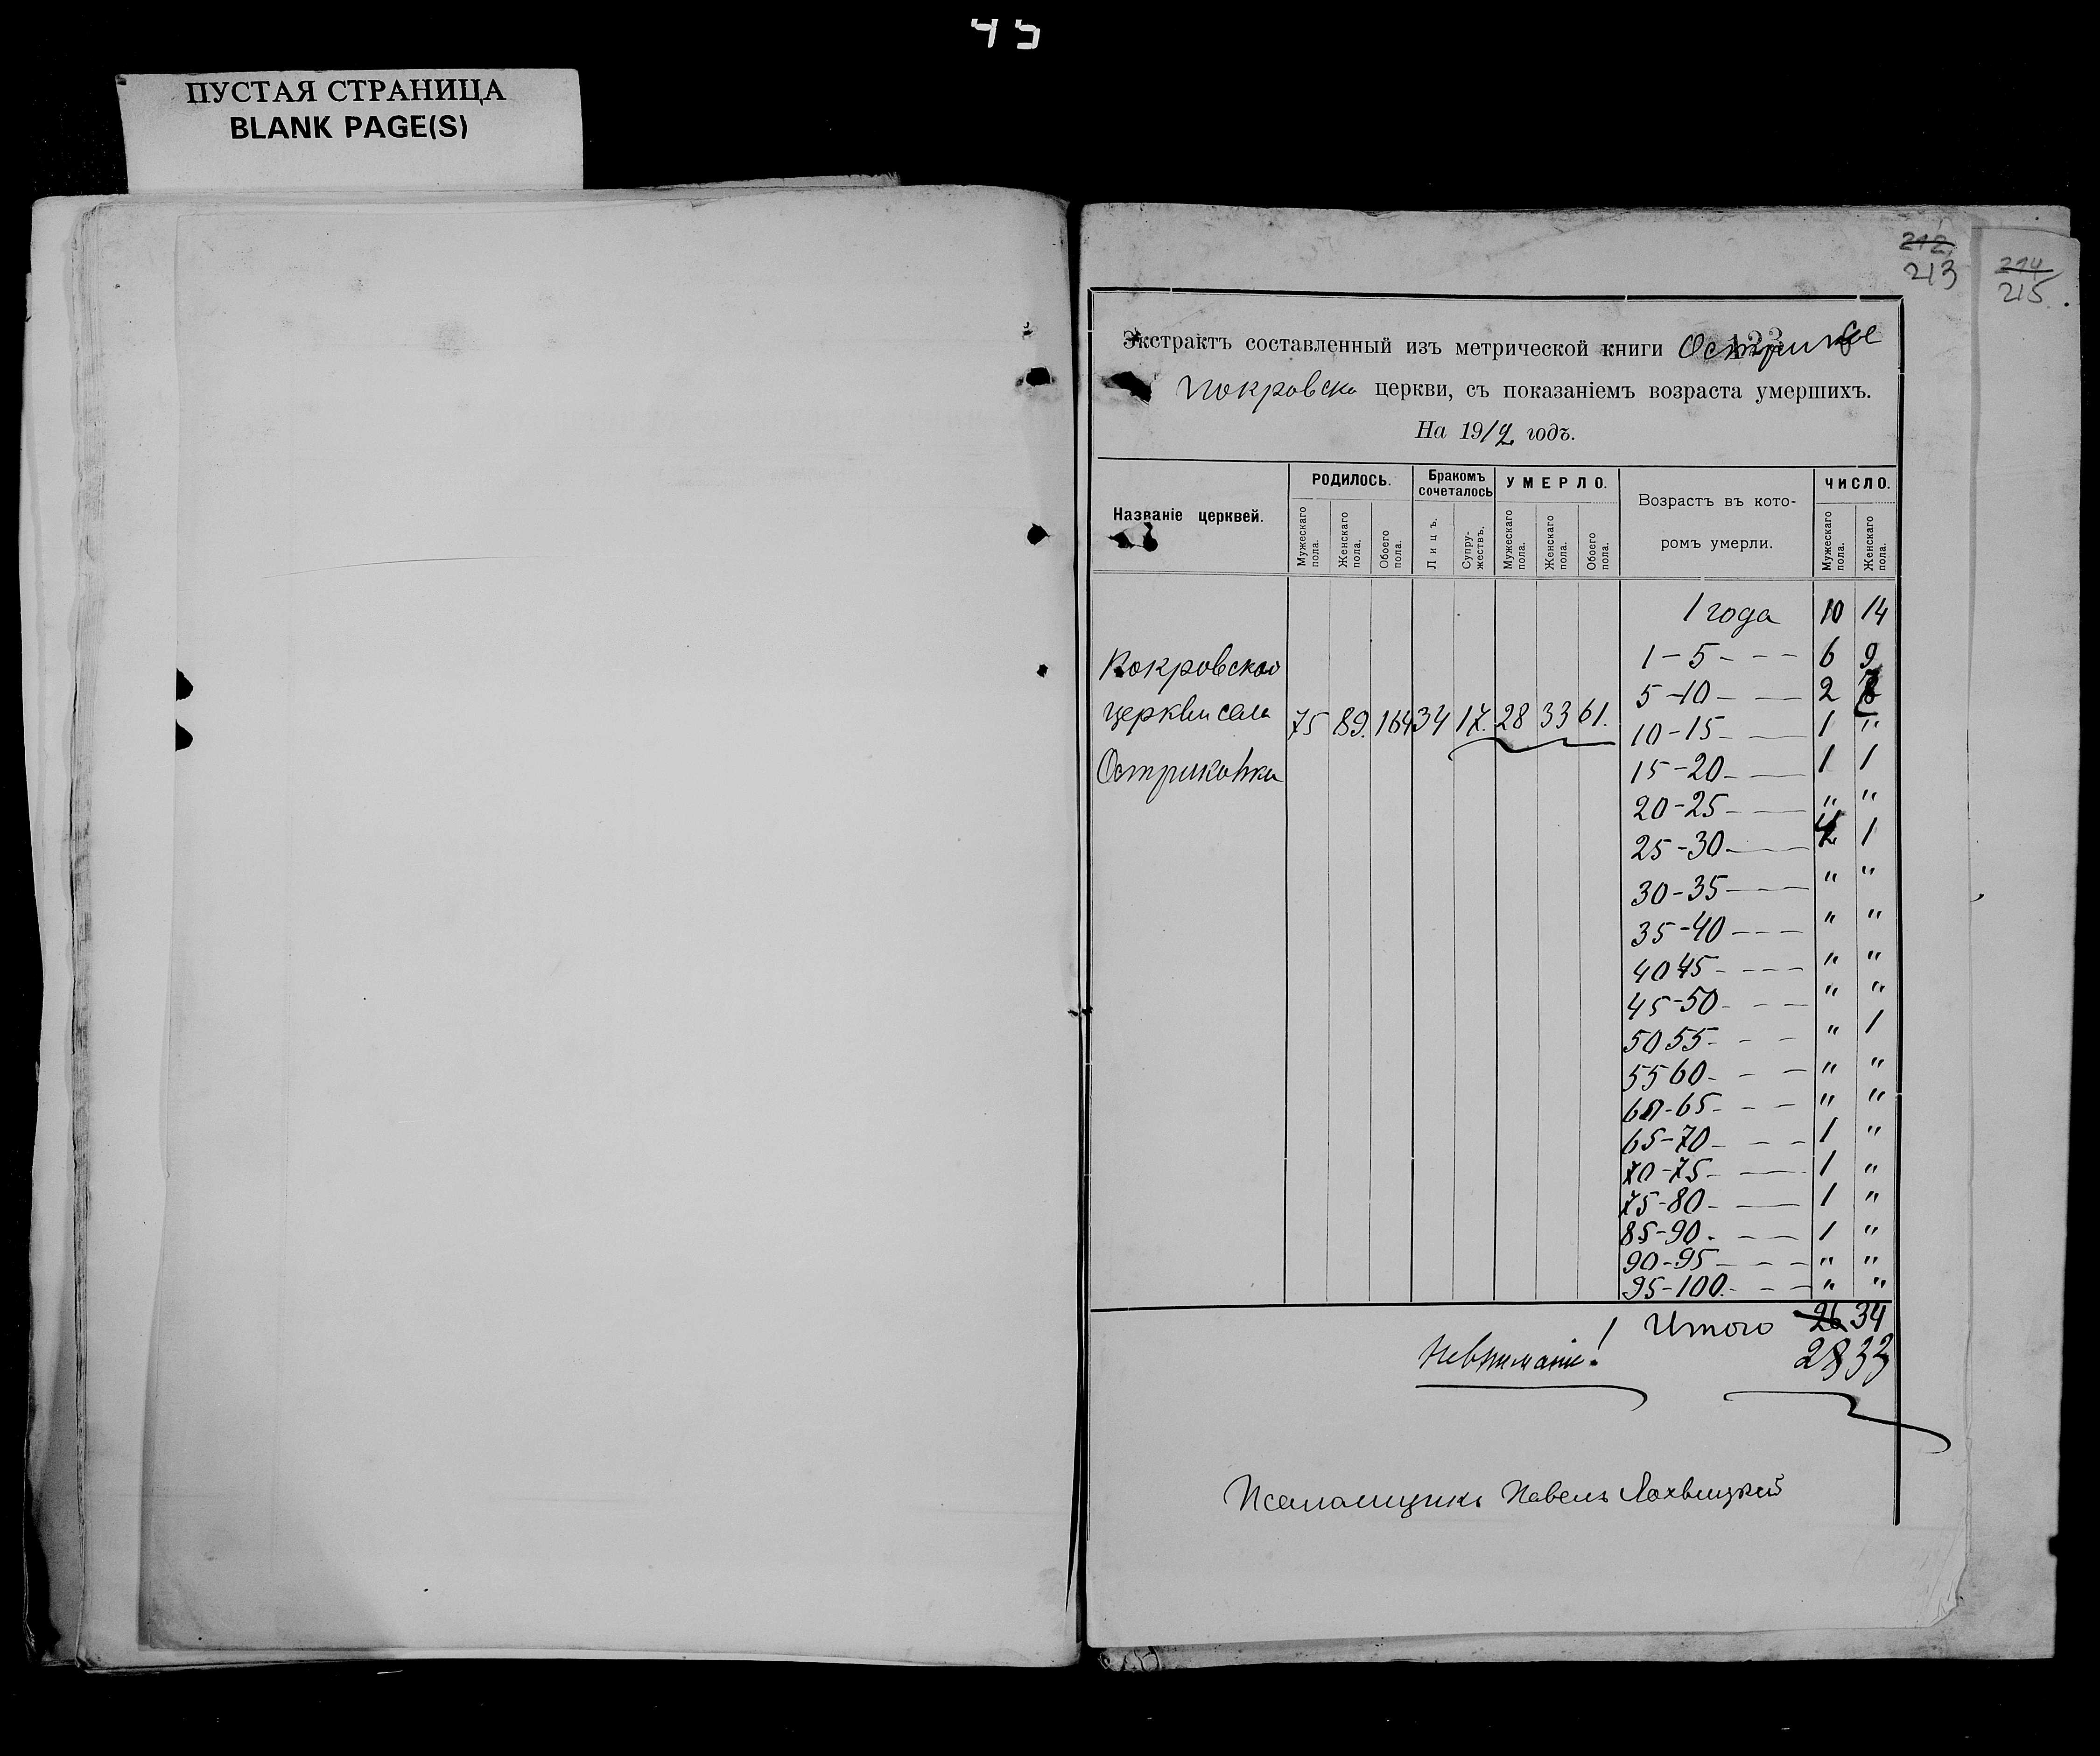 45
ПУСТАЯ СТРАНИЦА
BLANK PAGE(S)
212
213
214
215
Экстрактъ составленный изъ метрической книги
123
Покровско церкви, съ показаніемъ возраста умершихъ.
На 1912 годъ.
Названіе церквей.
РОДИЛОСЬ.
Мужескаго пола.
Женскаго пола.
Обоего пола.
Бракомъ сочеталось
Лицъ.
Супружествъ.
УМЕРЛО.
Мужескаго пола.
Женскаго пола.
Обоего пола.
Возрастъ въ кото-
ромъ умерли.
ЧИСЛО.
Мужескаго пола.
Женскаго пола.
Покровской
церкви села
Остриковки
75 89. 164 34 17. 28 33 61.
1 года 10 14
1-5 - - - 6 9
5-10 - — 2
10-15 - — 1 "
15-20 - — 1 1
20-25 - — " "
25-30 — 1
30-35 — " "
35-40 - - - " "
40 45 - - - - " "
45-50 - - - " "
50 55 - - - " 1
55 60 - - - " "
60-65 - - - " "
65-70 - - - 1 "
70-75 - — 1 "
75-80 - — 1 "
85-90. - - 1 "
90-95 - - - " "
95-100. - - - " "
Итого 26 34
28 33
Невниманіе!
Псаломщикъ Павелъ Лохвицкій